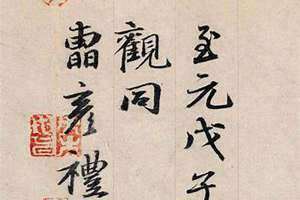 至元戊子
觀同
曹彥禮